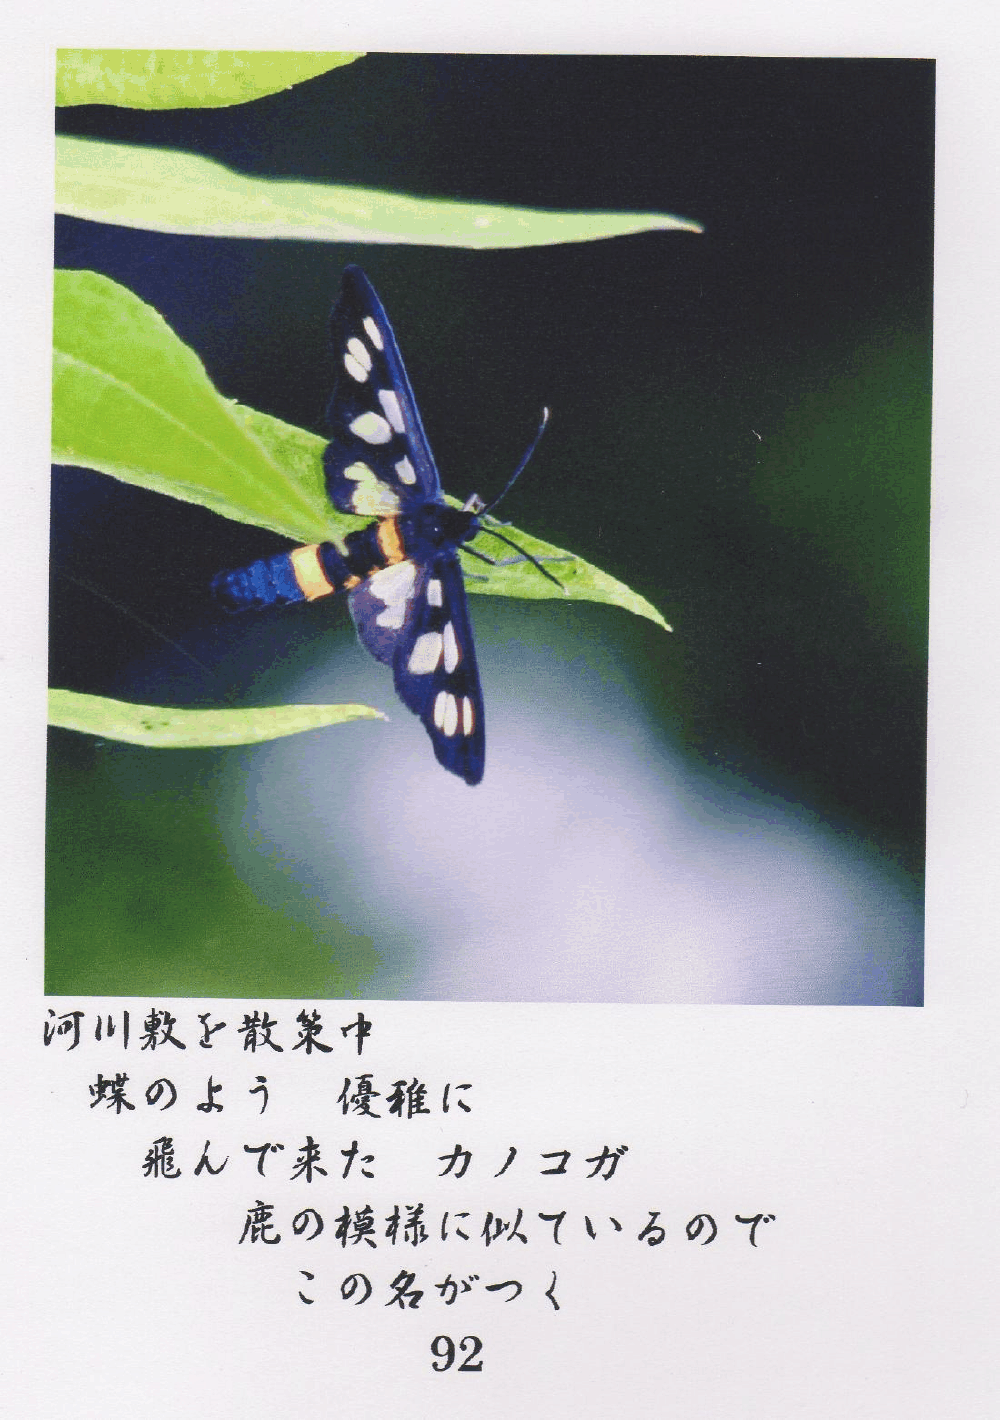 河川敷を散策中
蝶のよう 優雅に
飛んで来た カノコガ
鹿の模様に似ているので
この名がつく
92